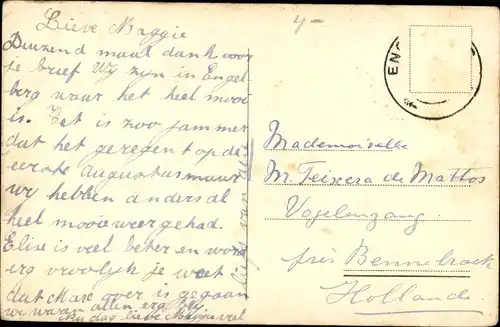 4-
Lieve Maggie
Duizend maal dank voor
je brief Wy zyn in Engel
berg waar het heel mooi
is. Het is zoo jammer
dat het geregent op de
eerste Augustus maar
wy hebben anders al
heel mooi weer gehad.
Elise is veel beter en word
erg vroolyk je weet
dat Max over is gegaan
wy waren allen erg bly
Nu dag lieve Magie veel
liefs van
ENG
Mademoiselle
M. Teixera de Mattos
Vogelenzang
près Bennebroek
Hollande.